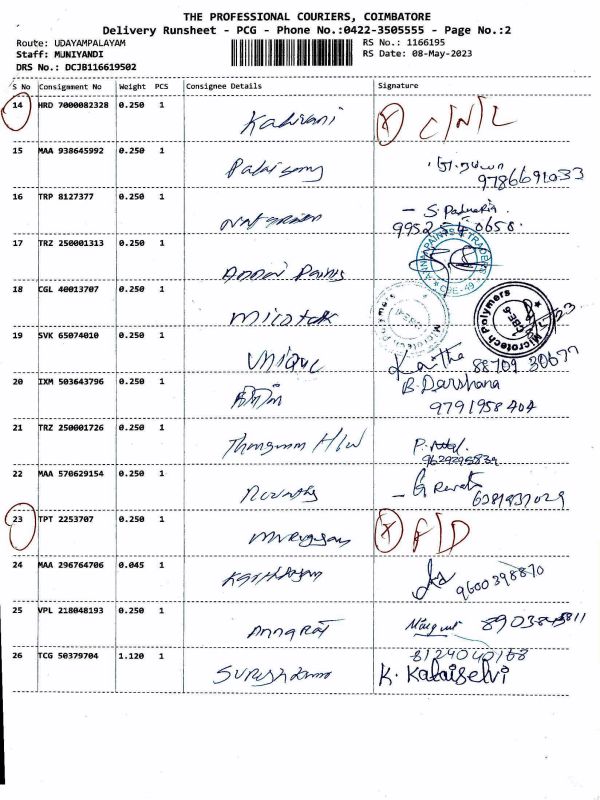 THE PROFESSIONAL COURIERS, COIMBATORE
Delivery Runsheet - PCG - Phone No.:0422-3505555 - Page No.:2
Route: UDAYAMPALAYAM RS No.: 1166195
Staff: MUNIYANDI RS Date: 08-May-2023
DRS No.: DCJB116619502
S No Consignment No Weight PCS Consignee Details Signature
14 HRD 7000082328 0.250 1 Kadirani C/N/L
15 MAA 938645992 0.250 1
9786691033
16 TRP 8127377 0.250 1 - S.
17 TRZ 250001313 0.250 1
18 CGL 40013707 0.250 1 Microtek
Microtech Polymers
19 SVK 65074010 0.250 1 Unique
20 IXM 503643796 0.250 1 B. Darshana
9791958404
21 TRZ 250001726 0.250 1 H/W
9629295839
22 MAA 570629154 0.250 1 - G Revati
23 TPT 2253707 0.250 1 Murugesan
24 MAA 296764706 0.045 1
9600398870
25 VPL 218048193 0.250 1 Annaraj
8124040168
26 TCG 50379704 1.120 1 Sureshkumar K. Kalaiselvi